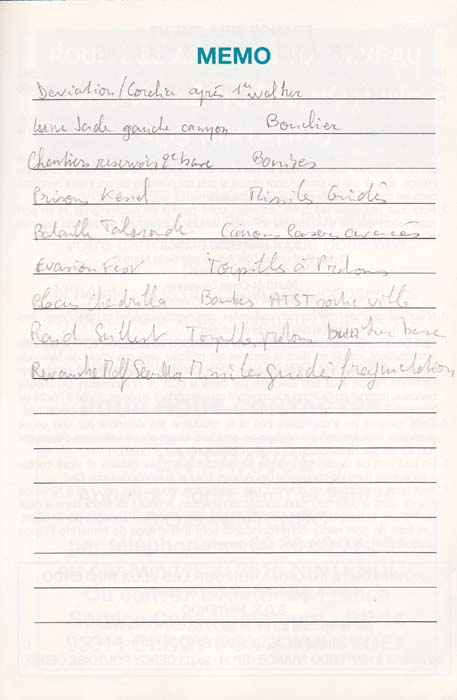 MEMO
Deviation/Corelia après 1er walker
Lune Jade gauche canyon Bouclier
Chantiers reservoir 2e base Bombes
Prison Kessel Missiles Guidés
Bataille Taloraan Canons laser avancés
Evasion Fest Torpilles à Protons
Blocus Chandrilla Bombes ATST sortie ville
Raid Sullust Torpilles protons base
Revanche Moff Seerdon Missiles guidés fragmentation